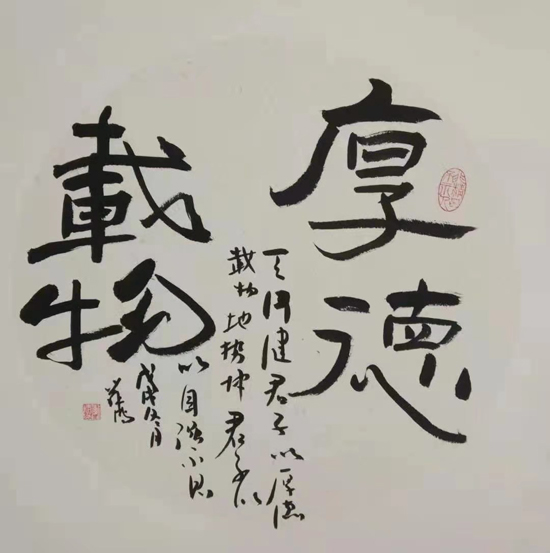 厚德
載物
天行健君子以厚德
載物地势坤君子以
以自强不息
戊戌冬月